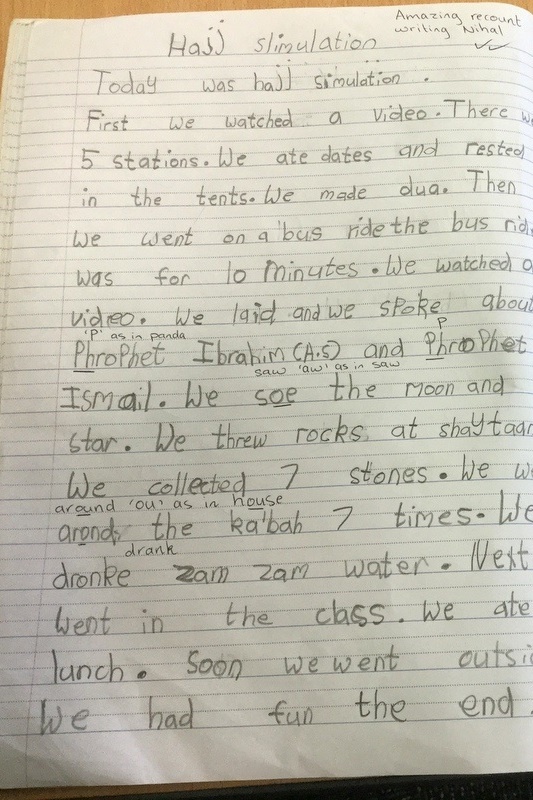 Amazing recount
writing Nihal
Hajj slimulation
Today was hajj simulation.
First we watched a video. There w
5 stations. We ate dates and rested
in the tents. We made dua. Then
We went on a bus ride the bus rid
was for 10 minutes. We watched a
video. We laid and we spoke about
'P' as in panda
P
Phrophet Ibrahim (A.S) and Phrophet
saw 'aw' as in saw
Ismail. We soe the moon and
star. We threw rocks at shaytaan
We collected 7 stones. We we
around 'ou' as in house
arond, the ka'bah 7 times. We
drank
dronke zam zam water. Next
Went in the class. We ate
lunch. Soon we went outsi
We had fun the end.